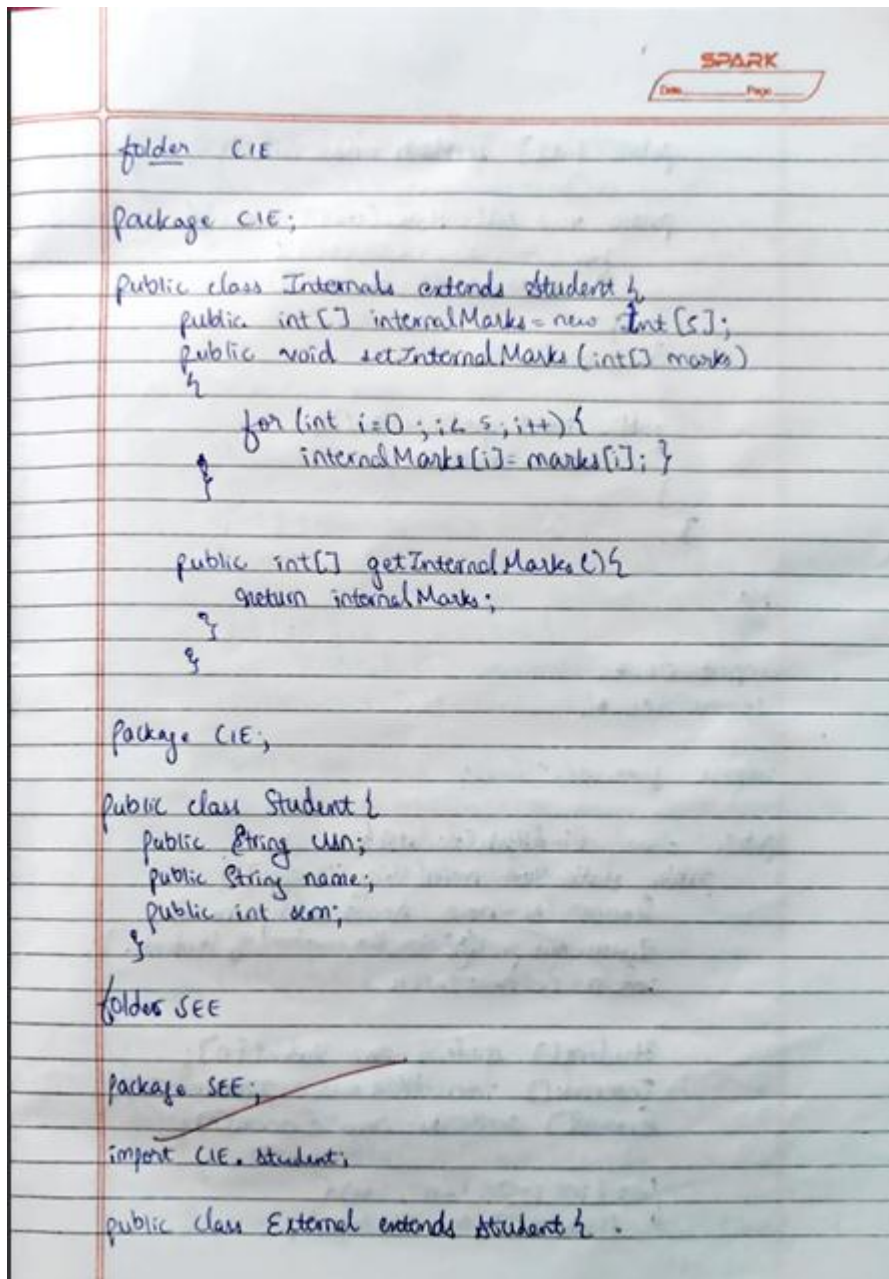 SPARK
Date Page
folder CIE
package CIE;
public class Internals extends Student {
public int[] internalMarks = new Int[5];
public void setInternalMarks (int[] marks)
{
for (int i=0; i< 5; i++) {
internalMarks[i] = marks[i]; }
}
public int[] getInternalMarks () {
return internalMarks;
}
}
package CIE;
public class Student {
public String usn;
public String name;
public int sem;
}
folder SEE
package SEE;
import CIE. Student;
public class External extends Student {